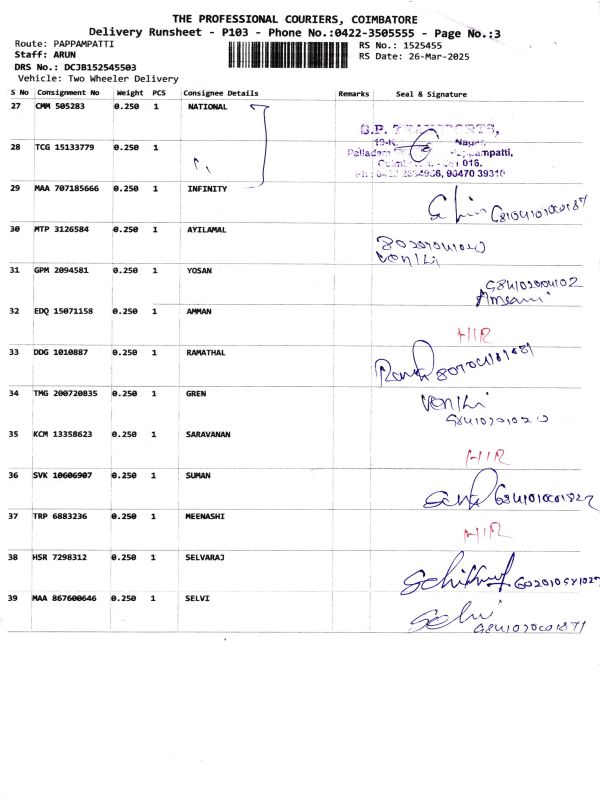 THE PROFESSIONAL COURIERS, COIMBATORE
Delivery Runsheet - P103 - Phone No.:0422-3505555 - Page No.:3
Route: PAPPAMPATTI RS No.: 1525455
Staff: ARUN RS Date: 26-Mar-2025
DRS No.: DCJB152545503
Vehicle: Two Wheeler Delivery
S No Consignment No Weight PCS Consignee Details Remarks Seal & Signature
27 CMM 505283 0.250 1 NATIONAL
S.P. TRANSPORTS,
Nagar,
28 TCG 15133779 0.250 1
Palladam Pappampatti,
016.
29 MAA 707185666 0.250 1 INFINITY
30 MTP 3126584 0.250 1 AYILAMAL
31 GPM 2094581 0.250 1 YOSAN
32 EDQ 15071158 0.250 1 AMMAN
HIR
33 DDG 1010887 0.250 1 RAMATHAL
34 TMG 200720835 0.250 1 GREN
35 KCM 13358623 0.250 1 SARAVANAN
HIR
36 SVK 10606907 0.250 1 SUMAN
37 TRP 6883236 0.250 1 MEENASHI
HIR
38 HSR 7298312 0.250 1 SELVARAJ
39 MAA 867600646 0.250 1 SELVI